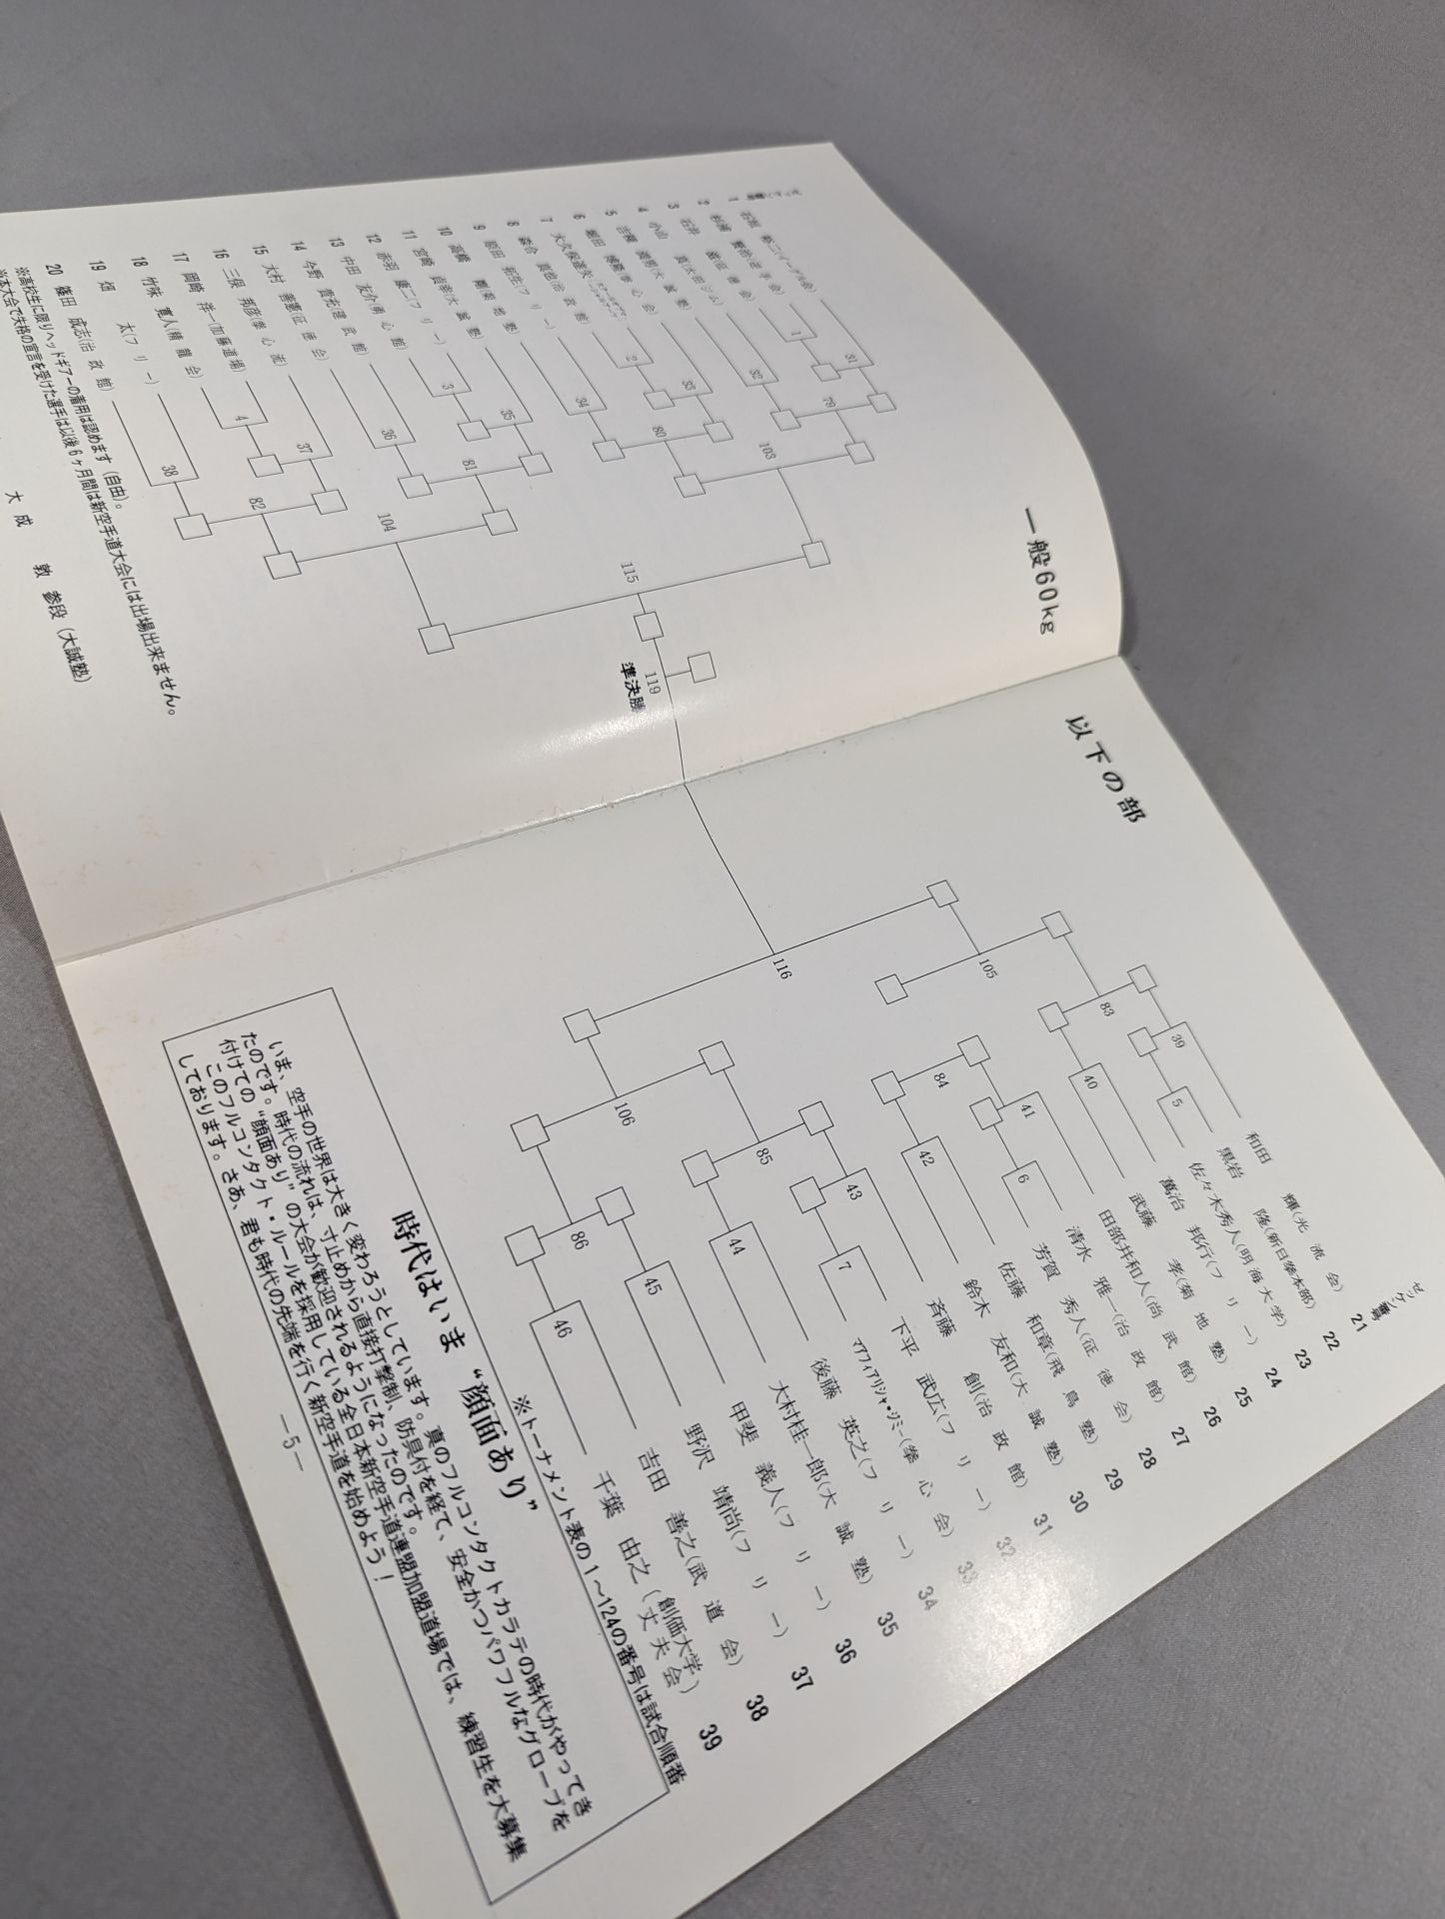 一般60kg
以下の部
ゼッケン番号
1
2
3
4 小山
5
6
7 大久保
8
9 原田
10 高橋
11 宮崎 貞幸(大誠塾)
12 赤羽 藤二(フリー)
13 中田 友介(勇心館)
14 今野
15 大村
16 三俣 邦彦(拳心流)
17 岡崎 洋一(加藤道場)
18 竹味 寛人(精龍会)
19 畑 太(フリー)
20 篠田 成志(治政館)
1
31
32
2
33
34
3
35
36
4
37
38
79
80
81
82
103
104
115
119
準決勝
※高校生に限りヘッドギアーの着用は認めます(自由)。
※本大会で失格の宣言を受けた選手は以後6ヶ月間は新空手道大会には出場出来ません。
大成 敦 参段(大誠塾)
116
105
106
83
84
85
86
39
5
40
41
6
42
43
7
44
45
46
ゼッケン番号
和田 輝(光流会) 21
黒岩 隆(新日拳本部) 22
佐々木秀人(明海大学) 23
萬治 邦行(フリー) 24
武藤 孝(菊地塾) 25
田部井和人(尚武館) 26
清水 雅一(治政館) 27
芳賀 秀人(征徳会) 28
佐藤 和章(飛鳥塾) 29
鈴木 友和(大誠塾) 30
斉藤 創(治政館) 31
下平 武広(フリー) 32
マフィアリシャ・ジミー(拳心会) 33
後藤 英之(フリー) 34
大村桂一郎(大誠塾) 35
甲斐 義人(フリー) 36
野沢 靖尚(フリー) 37
吉田 善之(武道会) 38
千葉 由之(創価大学丈夫会) 39
※トーナメント表の1〜124の番号は試合順番
時代はいま“顔面あり”
いま、空手の世界は大きく変わろうとしています。真のフルコンタクトカラテの時代がやってき
たのです。時代の流れは、寸止めから直接打撃制、防具付を経て、安全かつパワフルなグローブを
付けての“顔面あり”の大会が歓迎されるようになったのです。
このフルコンタクト・ルールを採用している全日本新空手道連盟加盟道場では、練習生を大募集
しております。さあ、君も時代の先端を行く新空手道を始めよう！
—5—